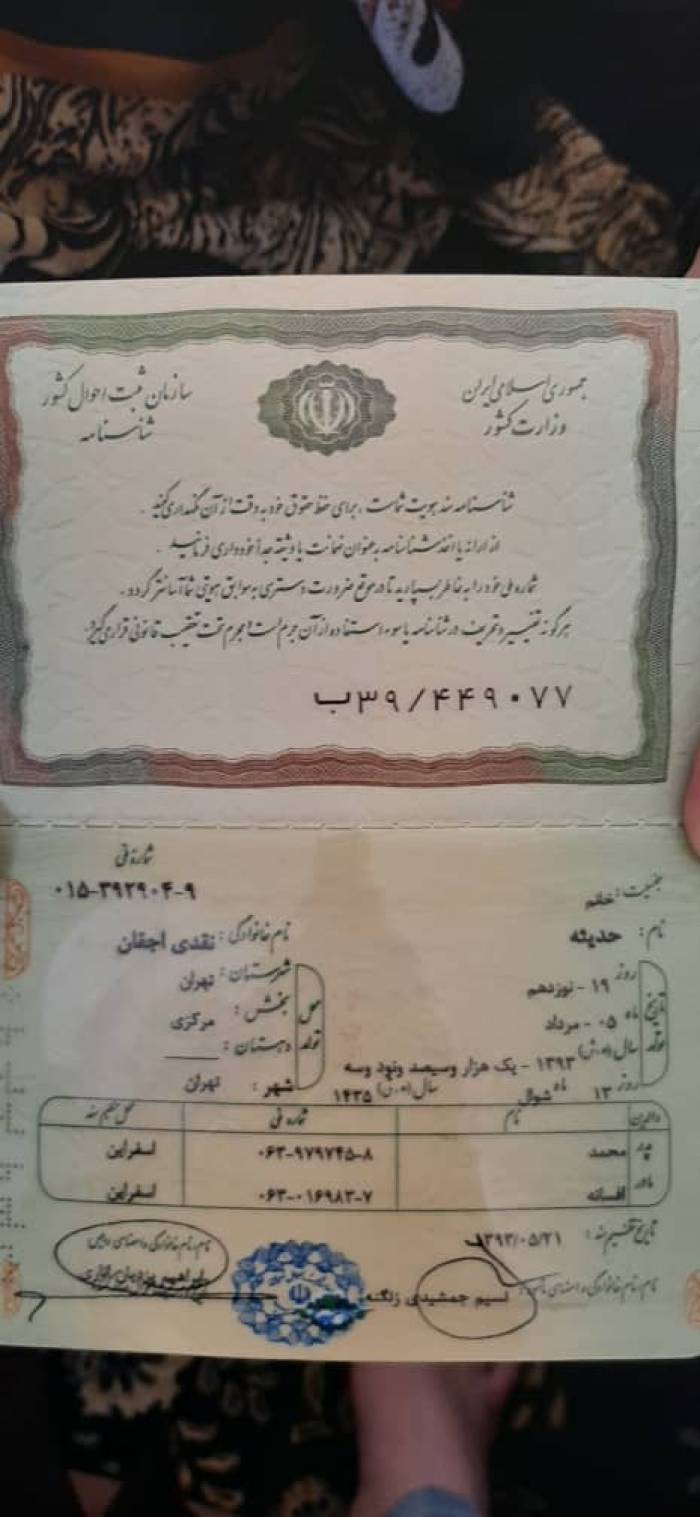 جمهوری اسلامی ایران
وزارت کشور
سازمان ثبت احوال کشور
شناسنامه
شناسنامه سند هویت شماست ، برای حفظ حقوق خود به دقت از آن نگهداری کنید .
از ارائه یا اخذ شناسنامه به عنوان ضمانت یا وثیقه جداً خودداری فرمائید .
شماره ملی خود را به خاطر بسپارید تا در موقع ضرورت دسترسی به سوابق هویتی شما آسانتر گردد .
هرگونه تغییر و تحریف در شناسنامه یا سوء استفاده از آن جرم است و مجرم تحت تعقیب قانونی قرار می‌گیرد .
ب۳۹/۴۴۹۰۷۷
شماره ملی
۰۱۵-۳۹۲۹۰۴-۹
جنسیت : خانم
نام : حدیثه نام خانوادگی : نقدی اجقان
تاریخ تولد روز ۱۹ - نوزدهم
ماه ۰۵ - مرداد
سال (ه.ش) ۱۳۹۳ - یک هزار وسیصد ونود وسه
روز ۱۳ ماه شوال سال (ه.ق) ۱۴۳۵
محل تولد شهرستان : تهران
بخش : مرکزی
دهستان :
شهر : تهران
والدین نام شماره ملی محل تنظیم سند
پدر محمد ۰۶۳-۹۷۹۷۴۵-۸ اسفراین
مادر افسانه ۰۶۳-۰۱۶۹۸۳-۷ اسفراین
تاریخ تنظیم سند : ۱۳۹۳/۰۵/۲۱
نام، نام خانوادگی و امضای مامور : نسیم جمشیدی زنگنه
نام، نام خانوادگی و امضای رئیس
ابراهیم